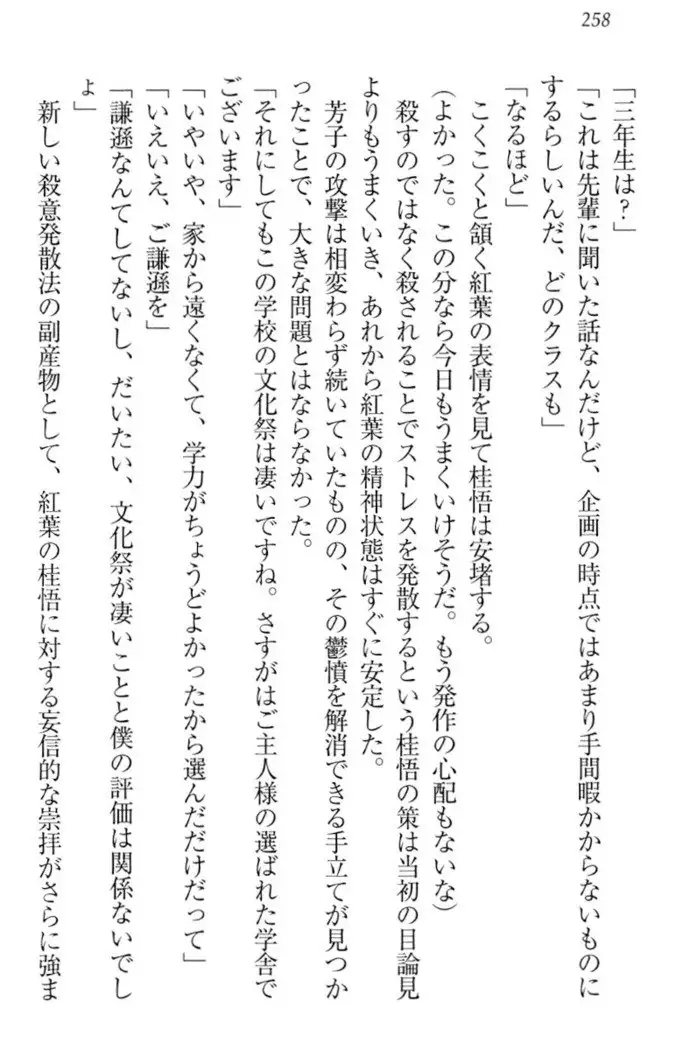 258
「三年生は？」
「これは先輩に聞いた話なんだけど、企画の時点ではあまり手間暇かからないものに
するらしいんだ、どのクラスも」
「なるほど」
こくこくと頷く紅葉の表情を見て桂悟は安堵する。
（よかった。この分なら今日もうまくいけそうだ。もう発作の心配もないな）
殺すのではなく殺されることでストレスを発散するという桂悟の策は当初の目論見
よりもうまくいき、あれから紅葉の精神状態はすぐに安定した。
芳子の攻撃は相変わらず続いていたものの、その鬱憤を解消できる手立てが見つか
ったことで、大きな問題とはならなかった。
「それにしてもこの学校の文化祭は凄いですね。さすがはご主人様の選ばれた学舎で
ございます」
「いやいや、家から遠くなくて、学力がちょうどよかったから選んだだけだって」
「いえいえ、ご謙遜を」
「謙遜なんてしてないし、だいたい、文化祭が凄いことと僕の評価は関係ないでし
ょ」
新しい殺意発散法の副産物として、紅葉の桂悟に対する妄信的な崇拝がさらに強ま